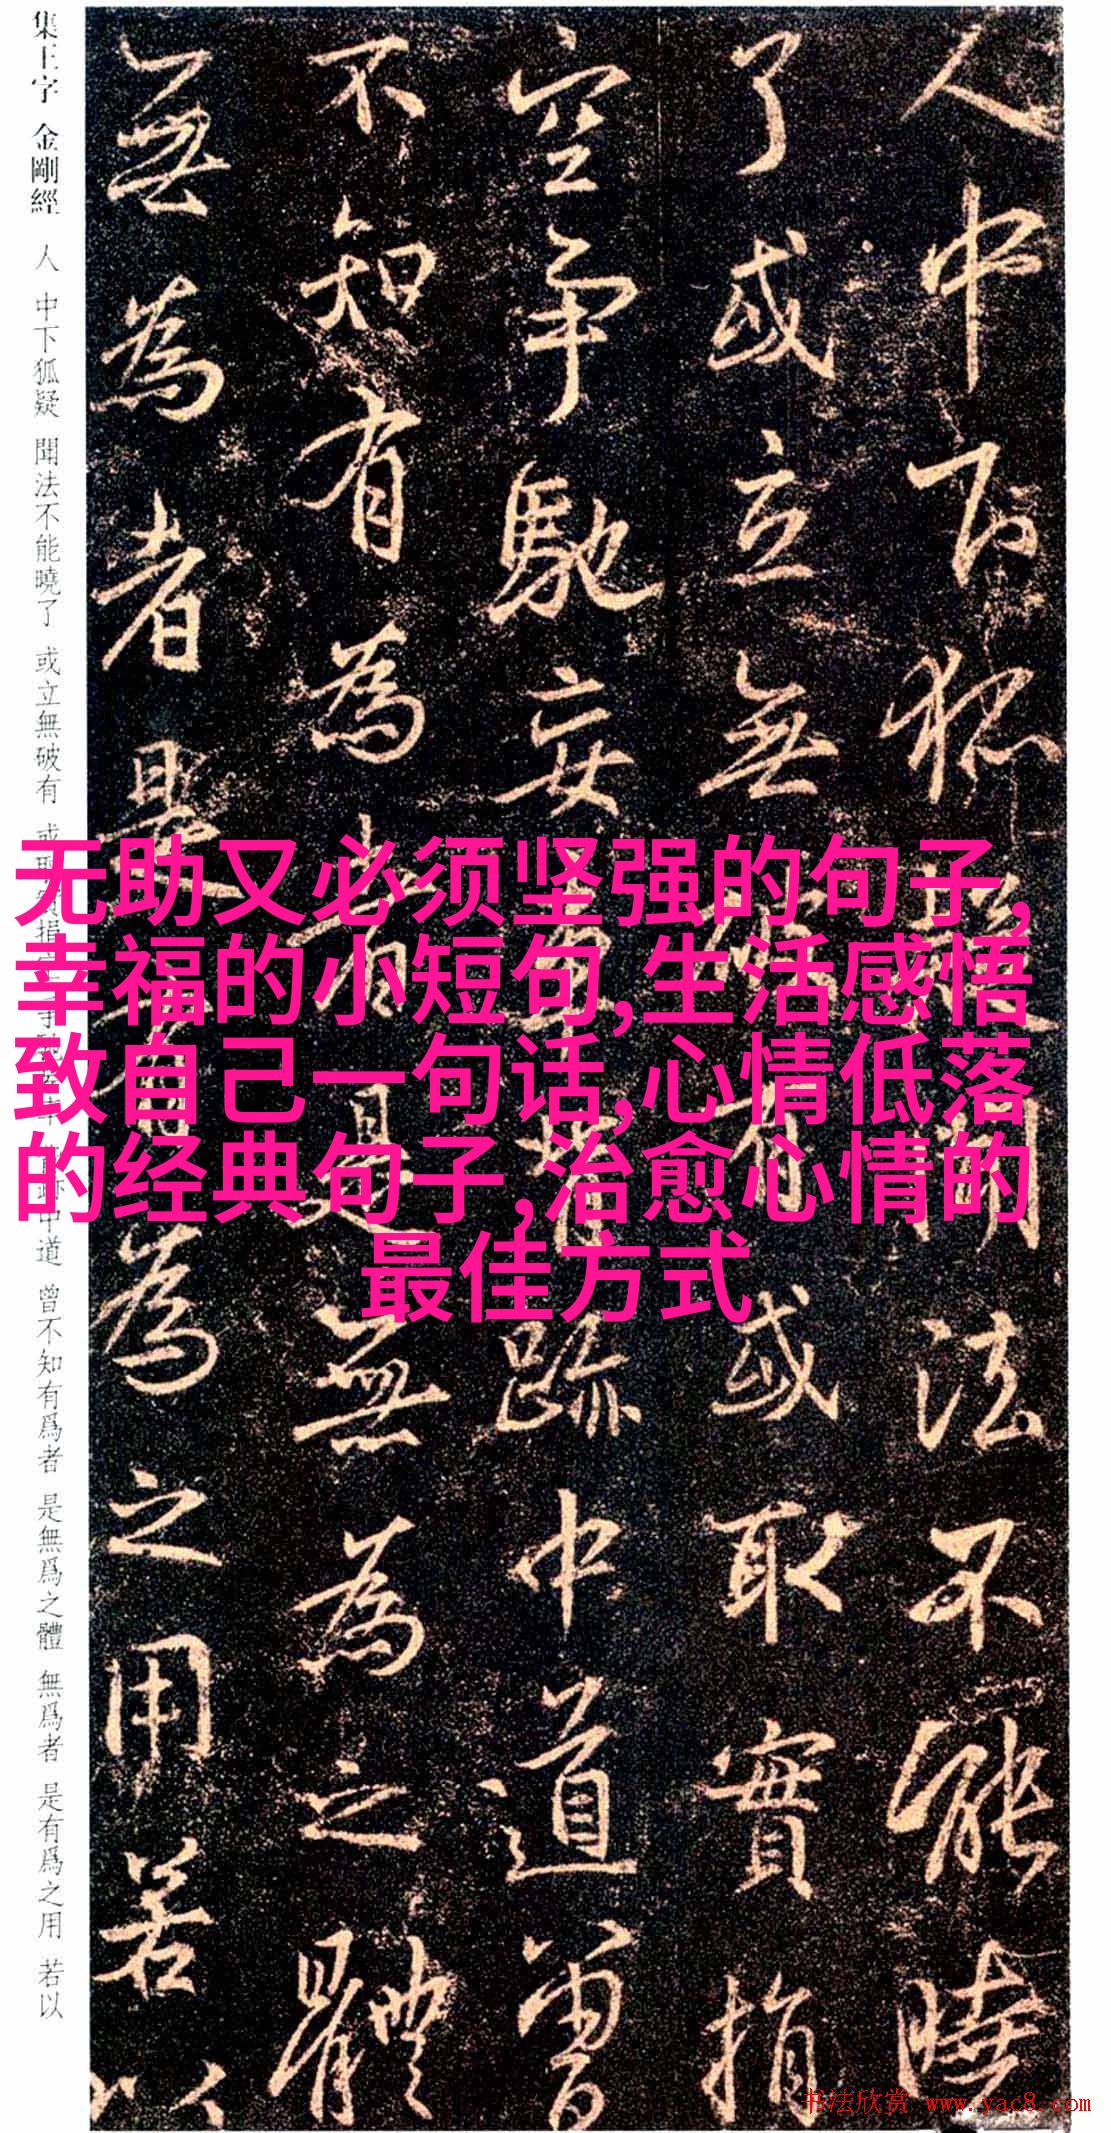 無助又必须坚强的句子,
幸福的小短句,生活感悟
致自己一句话,心情低落
的经典句子,治愈心情的
最佳方式
人中下狐疑聞法不能曉
了或立無破有或取實捐
空爭馳妄跡中道曾
不知有為者是無為之體
無為者是有為之用若以
集王字 金剛經 人 中下狐疑 聞法不能曉了 或立無破有 或 捐 中道 曾不知有爲者 是無爲之體 無爲者 是有爲之用 若以
书法欣赏 www.yac8.com